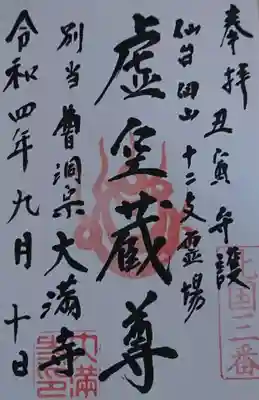 奉拝 丑寅守護
仙台四山 十二支霊場
虚空蔵尊
別当 曹洞宗 大満寺
令和四年九月 十日
北国三番